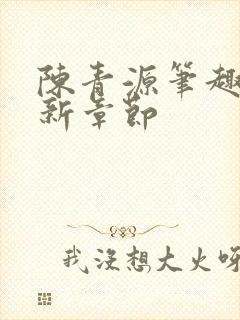 陳青源筆趣
新章節
我沒想大火呀